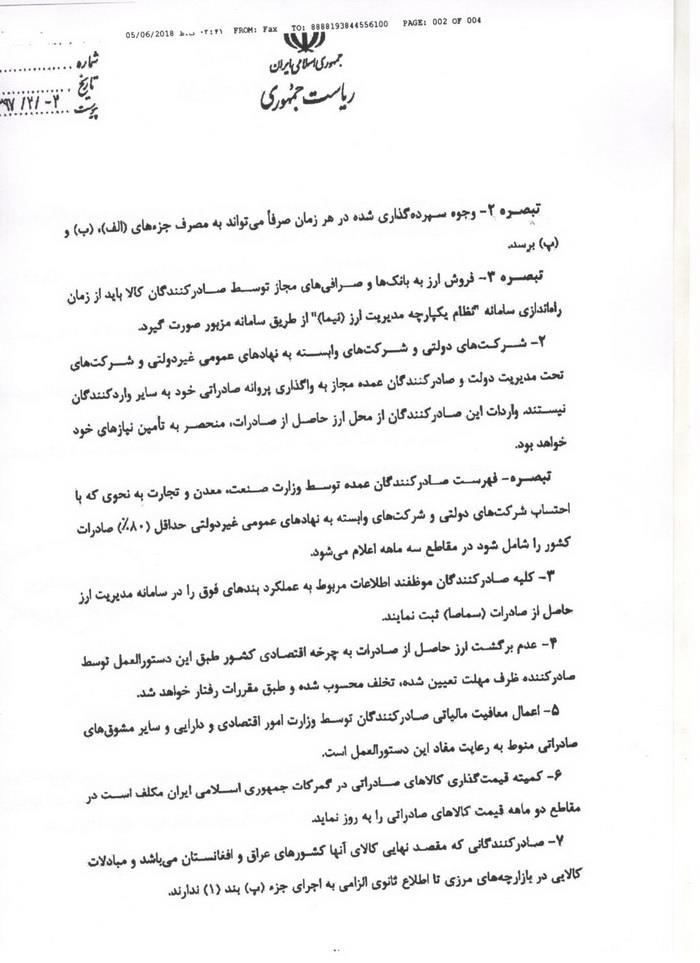 05/06/2018 ۰۲:۲۱ ب.ظ FROM: Fax TO: 8888193844556100 PAGE: 002 OF 004
جمهوری اسلامی ایران
ریاست جمهوری
شماره
تاریخ
پیوست
تبصره ۲- وجوه سپرده‌گذاری شده در هر زمان صرفاً می‌تواند به مصرف جزءهای (الف)، (ب) و
(پ) برسد.
تبصره ۳- فروش ارز به بانک‌ها و صرافی‌های مجاز توسط صادرکنندگان کالا باید از زمان
راه‌اندازی سامانه "نظام یکپارچه مدیریت ارز (نیما)" از طریق سامانه مزبور صورت گیرد.
۲- شرکت‌های دولتی و شرکت‌های وابسته به نهادهای عمومی غیردولتی و شرکت‌های
تحت مدیریت دولت و صادرکنندگان عمده مجاز به واگذاری پروانه صادراتی خود به سایر واردکنندگان
نیستند. واردات این صادرکنندگان از محل ارز حاصل از صادرات، منحصر به تأمین نیازهای خود
خواهد بود.
تبصره- فهرست صادرکنندگان عمده توسط وزارت صنعت، معدن و تجارت به نحوی که با
احتساب شرکت‌های دولتی و شرکت‌های وابسته به نهادهای عمومی غیردولتی حداقل (۸۰٪) صادرات
کشور را شامل شود در مقاطع سه ماهه اعلام می‌شود.
۳- کلیه صادرکنندگان موظفند اطلاعات مربوط به عملکرد بندهای فوق را در سامانه مدیریت ارز
حاصل از صادرات (سماصا) ثبت نمایند.
۴- عدم برگشت ارز حاصل از صادرات به چرخه اقتصادی کشور طبق این دستورالعمل توسط
صادرکننده ظرف مهلت تعیین شده، تخلف محسوب شده و طبق مقررات رفتار خواهد شد.
۵- اعمال معافیت مالیاتی صادرکنندگان توسط وزارت امور اقتصادی و دارایی و سایر مشوق‌های
صادراتی منوط به رعایت مفاد این دستورالعمل است.
۶- کمیته قیمت‌گذاری کالاهای صادراتی در گمرکات جمهوری اسلامی ایران مکلف است در
مقاطع دو ماهه قیمت کالاهای صادراتی را به روز نماید.
۷- صادرکنندگانی که مقصد نهایی کالای آنها کشورهای عراق و افغانستان می‌باشد و مبادلات
کالایی در بازارچه‌های مرزی تا اطلاع ثانوی الزامی به اجرای جزء (پ) بند (۱) ندارند.